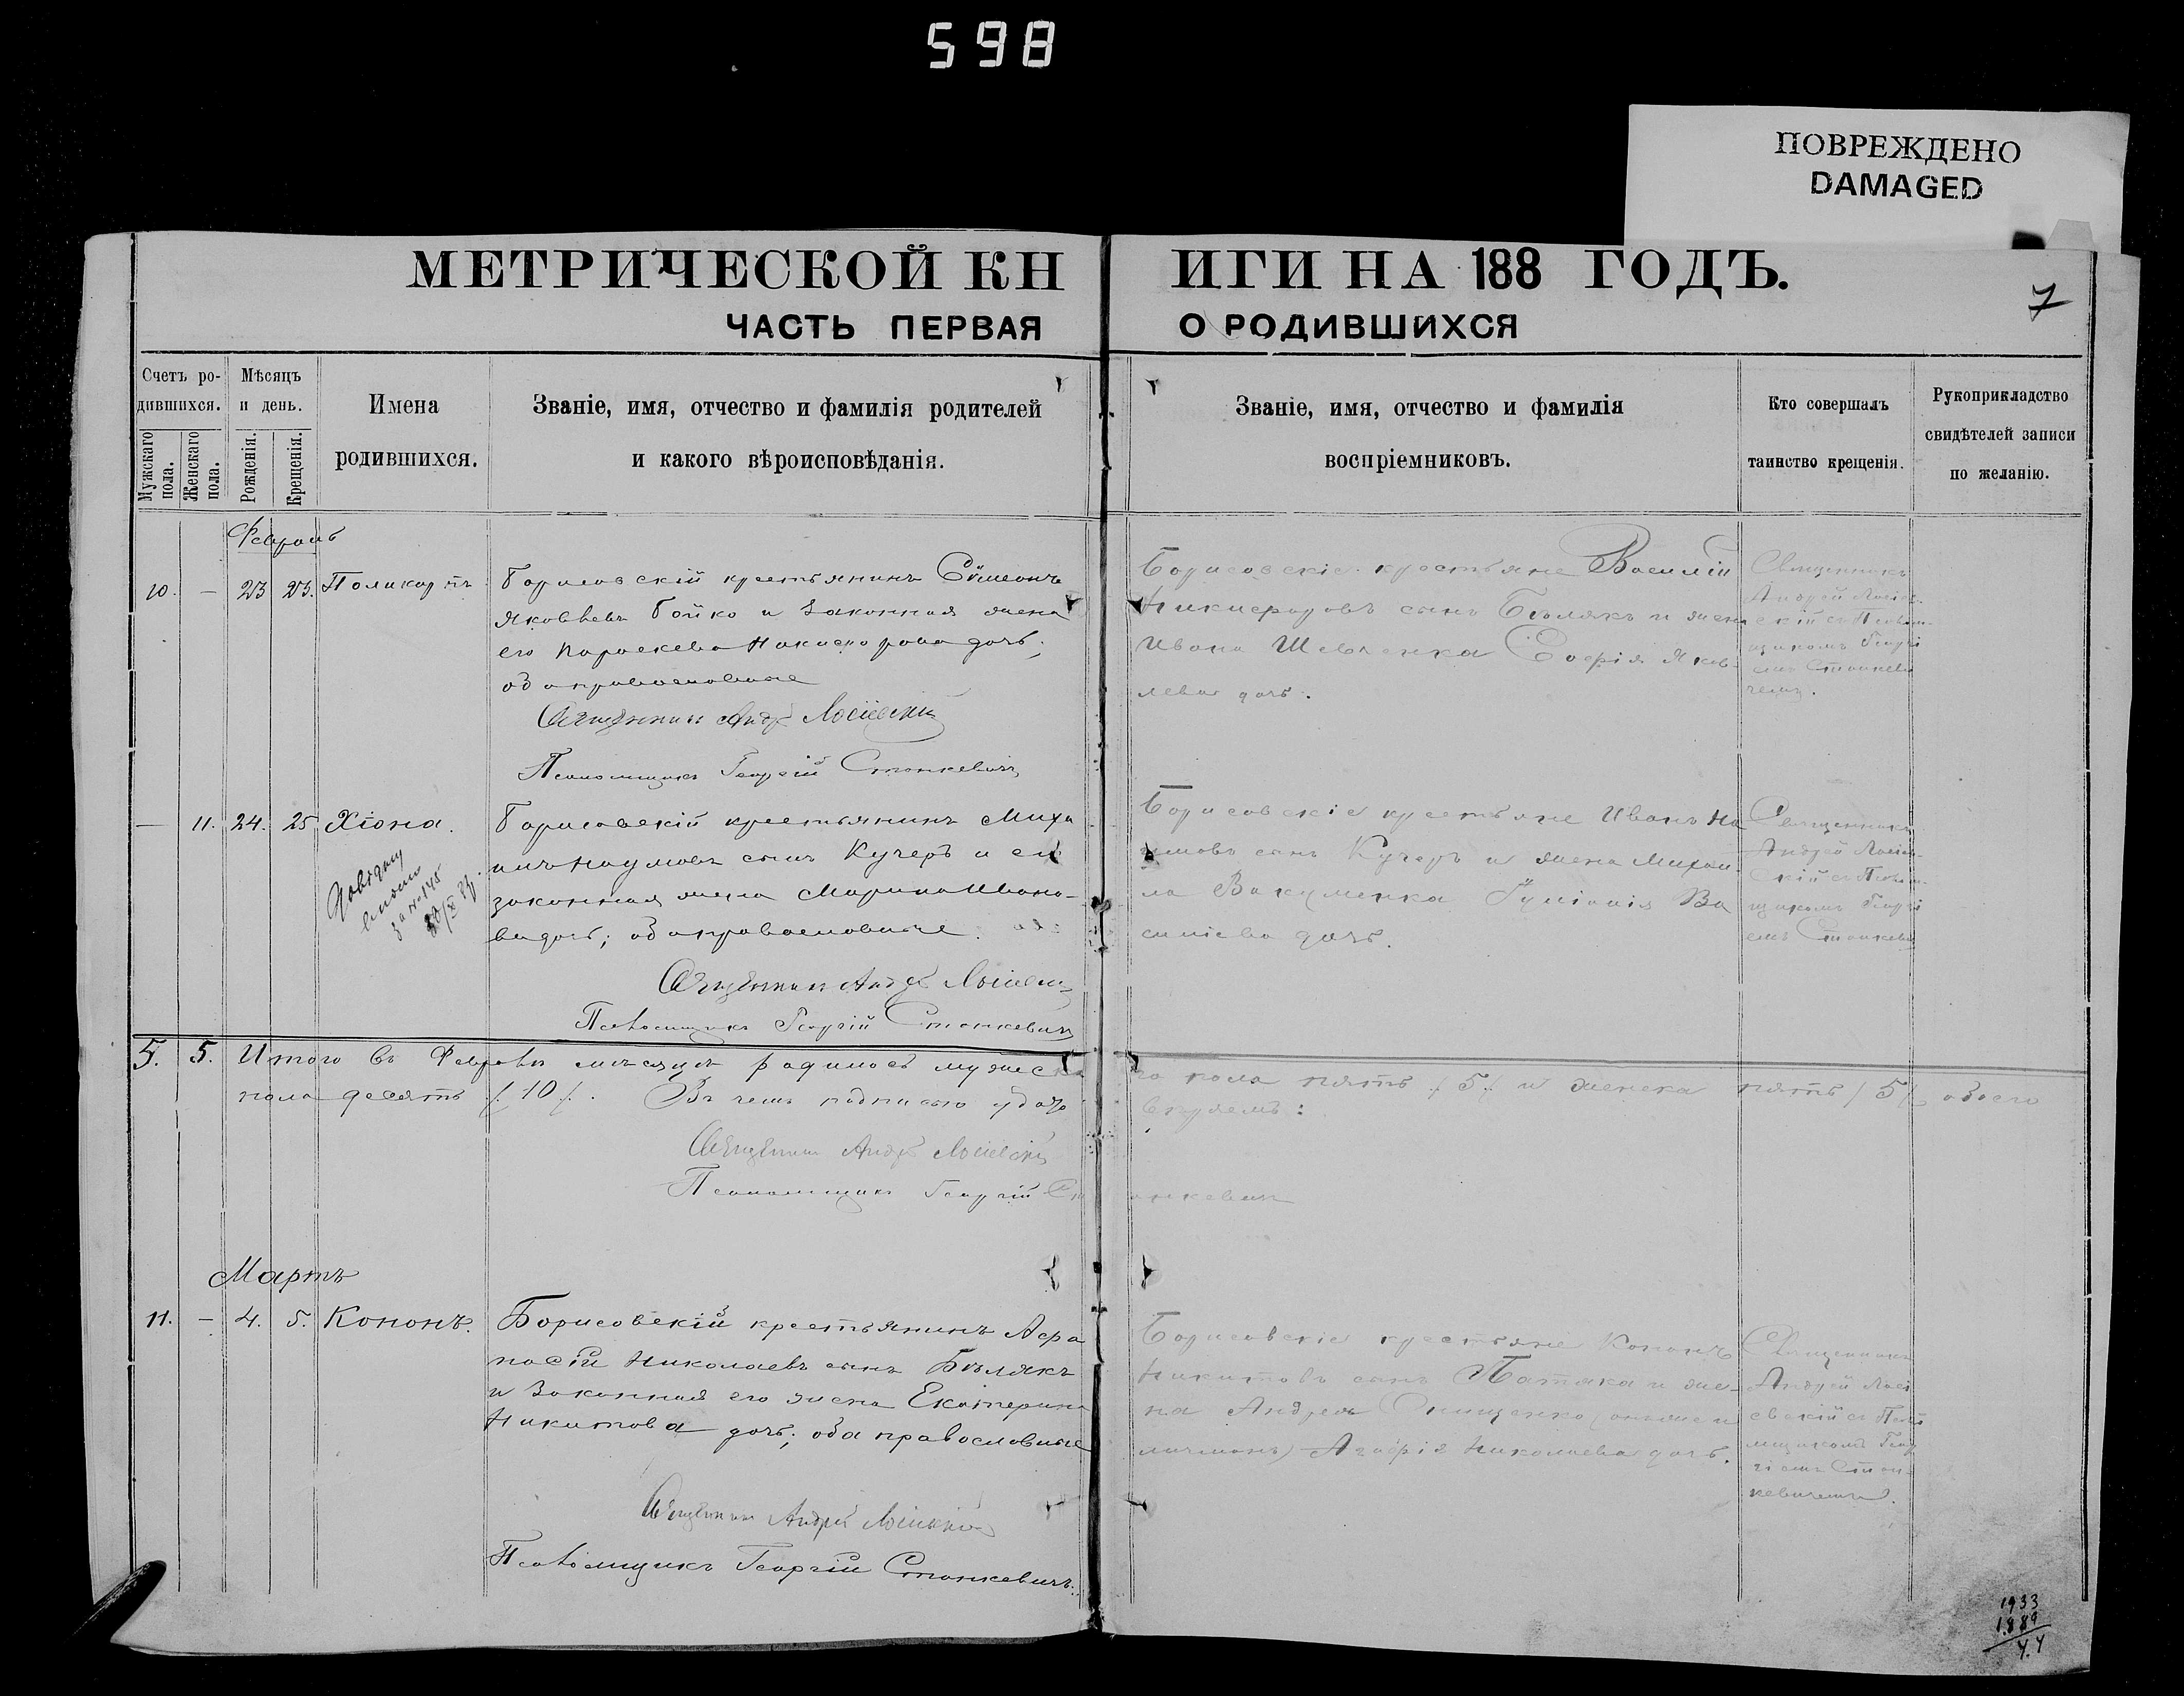 598
ПОВРЕЖДЕНО
DAMAGED
МЕТРИЧЕСКОЙ КНИГИ НА 188 ГОДЪ.
7
ЧАСТЬ ПЕРВАЯ О РОДИВШИХСЯ
Счетъ ро-
дившихся.
Мужскаго пола.
Женскаго пола.
Мѣсяцъ
и день.
Рожденія.
Крещенія.
Имена
родившихся.
Званіе, имя, отчество и фамилія родителей
и какого вѣроисповѣданія.
Званіе, имя, отчество и фамилія
воспріемниковъ.
Кто совершалъ
таинство крещенія.
Рукоприкладство
свидѣтелей записи
по желанію.
Февраль
10. — 23 23. Поликарпъ
Борисовскій крестьянинъ Сѵмеонъ
Яковлевъ Бойко и законная жена
его Параскева Никифорова дочь;
оба православные
Священникъ Андрей Лосіевскій
Псаломщикъ Георгій Станкевичъ
Борисовскіе крестьяне Василій
Никифоровъ сынъ Бѣлякъ и жена
Ивана Шевченка Софія Яков-
лева дочь.
Священникъ
Андрей Лосіев-
скій съ Псалом-
щикомъ Георгі-
емъ Станкеви-
чемъ.
— 11. 24. 25 Хіона.
за № 145
Борисовскій крестьянинъ Миха
илъ Наумовъ сынъ Кучеръ и его
законная жена Марина Ивано-
ва дочь; оба православные.
Священникъ Андрей Лосіевскій
Псаломщикъ Георгій Станкевичъ
Борисовскіе крестьяне Иванъ На
умовъ сынъ Кучеръ и жена Михаи-
ла Вакуменка Іуліанія Ва
силіева дочь.
Священникъ
Андрей Лосіев-
скій съ Псалом-
щикомъ Георгі
емъ Станкеви
5. 5. Итого въ Февралѣ мѣсяцѣ родилось мужска го пола пять /5/ и женска пять /5/, обоего
пола десять /10/. Въ чемъ подписью удосто вѣряемъ:
Священникъ Андрей Лосіевскій
Псаломщикъ Георгій Станкевичъ
Мартъ
11. — 4. 5. Кононъ.
Борисовскій крестьянинъ Афа
насій Николаевъ сынъ Бѣлякъ
и законная его жена Екатерина
Никитова дочь; оба православные
Священникъ Андрей Лосіевскій
Псаломщикъ Георгій Станкевичъ.
Борисовскіе крестьяне Кононъ
Никитовъ сынъ и же-
на Андрея Онищенко
Агафія Николаева дочь.
Священникъ
Андрей Лосі
евскій съ Псало
мщикомъ Геор
гіемъ Стан-
кевичемъ.
1933
1889
44